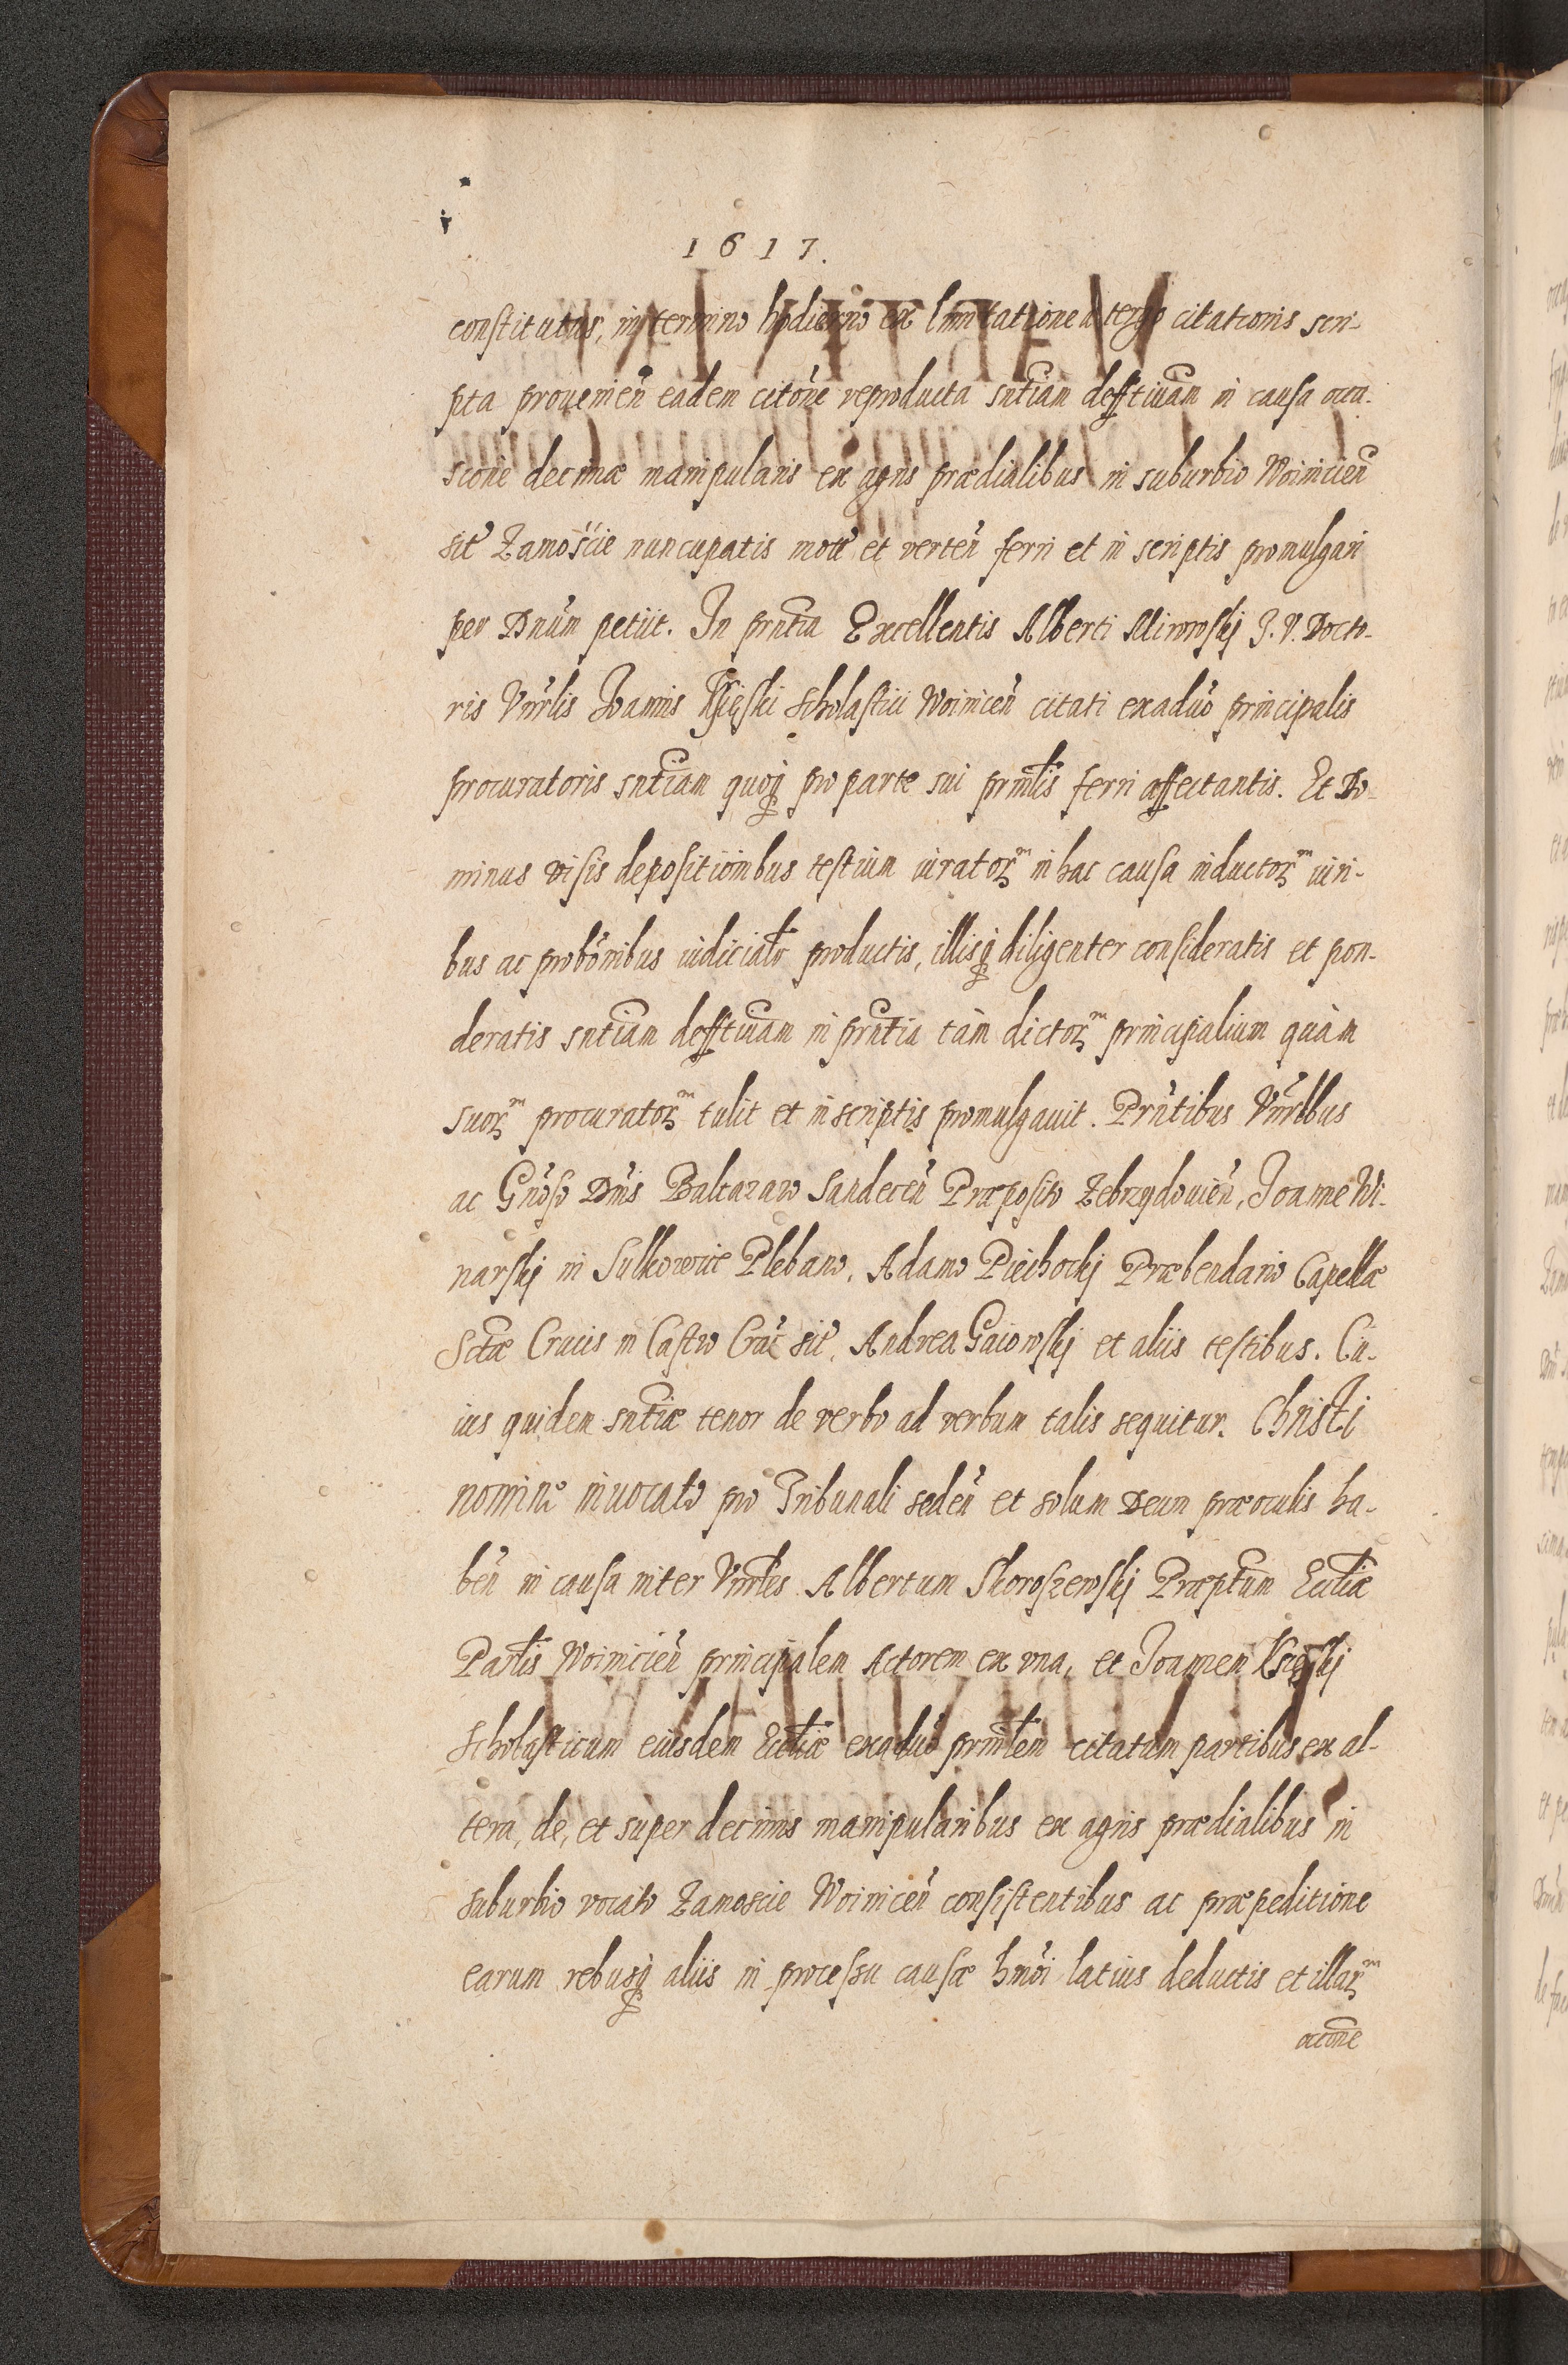 1617.
constitutus, in termino hodierno ex limitatione a tergo citationis scri-
pta prouenien̄ eadem citōne reproducta sntiam deffitiuam in causa occa-
sione decimæ manipularis ex agris prædialibus in suburbio Woinicien̄
sit̄ Zamoście nuncupatis motæ et verten̄ ferri et in scriptis promulgari
per Dnum petiit. In prntia Excellentis Alberti Mirowskj J. V. Docto-
ris Vnrlis Joannis Scholastici Woinicen̄ citati exaduō principalis
procuratoris sntiam quoq; pro parte sui prnlis ferri affectantis. Et Do-
minus visis depositionibus testium iuratorm in hac causa inductorm iuri-
bus ac probōnibus iudicialr productis, illisq; diligenter consideratis et pon-
deratis sntiam deffitiuam in prntia tàm dictorm principalium quàm
suorm procuratorm tulit et in scriptis promulgauit. Prntibus Vnrlbus
ac Gnoso Dnis Baltazaro Sandecen̄ Præposito Zebrzydouien̄, Joanne Wi-
narskj in Sulkowice Plebano, Adamo Piechockj Præbendario Capellæ
Sctæ Crucis in Castro Crac̄ sit̄, Andrea Gaiowskj et aliis testibus. Cu-
ius quidem sntiæ tenor de verbo ad verbum talis sequitur. Christi
nomine inuocato pro Tribunali seden̄ et solum Deum præ oculis ha-
ben̄ in causa inter Vnrles Albertum Skoroszewskj Præptum Eccliæ
Parlis Woinicien̄ principalem Actorem ex vna, et Joannem
Scholasticum eiusdem Eccliæ exaduō prnlem citatum partibus ex al-
tera, de, et super decimis manipularibus ex agris prædialibus in
suburbio vocato Zamoscie Woinicen̄ consistentibus ac præpeditione
earum rebusq; aliis in processu causæ hmōi latius deductis et illarm
occōne